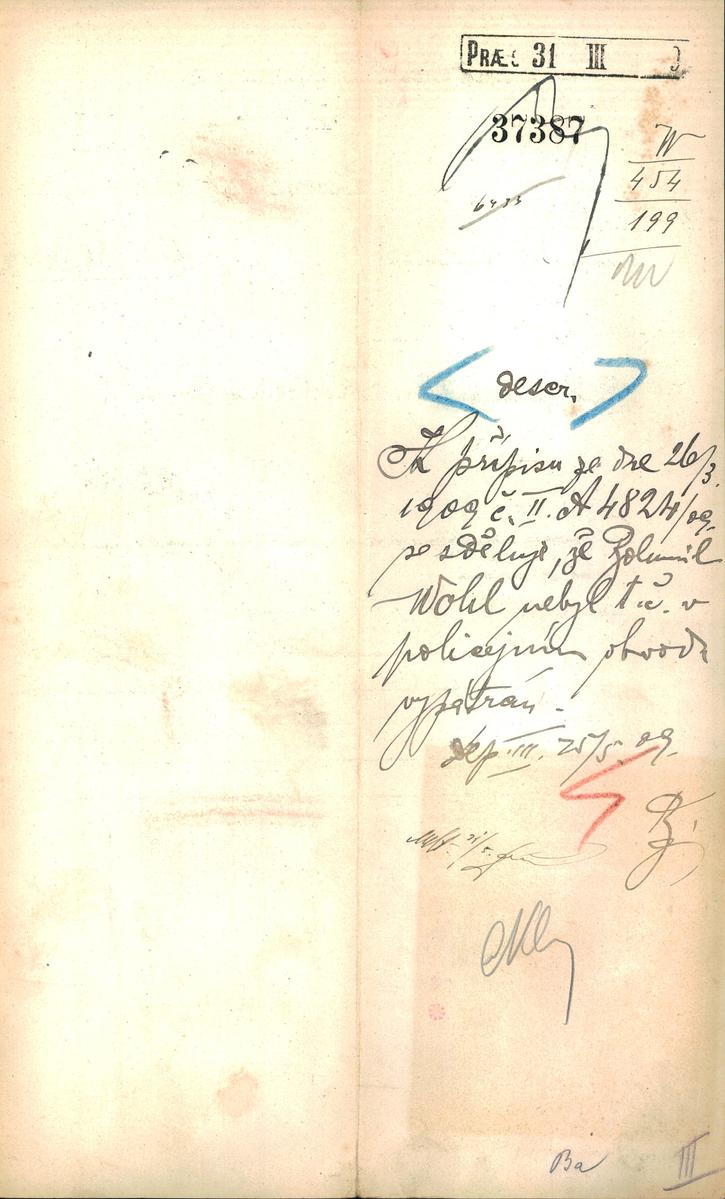 PRÆS 31 III
37387
W
454
199
descr.
K přípisu ze dne 26/3.
1909 č. II. A 4824/09.
se sděluje, že Bohumil
Wohl nebyl t. č. v
policejním obvodu
vypátrán.
dep. III. 25/5. 09.
Ba
III